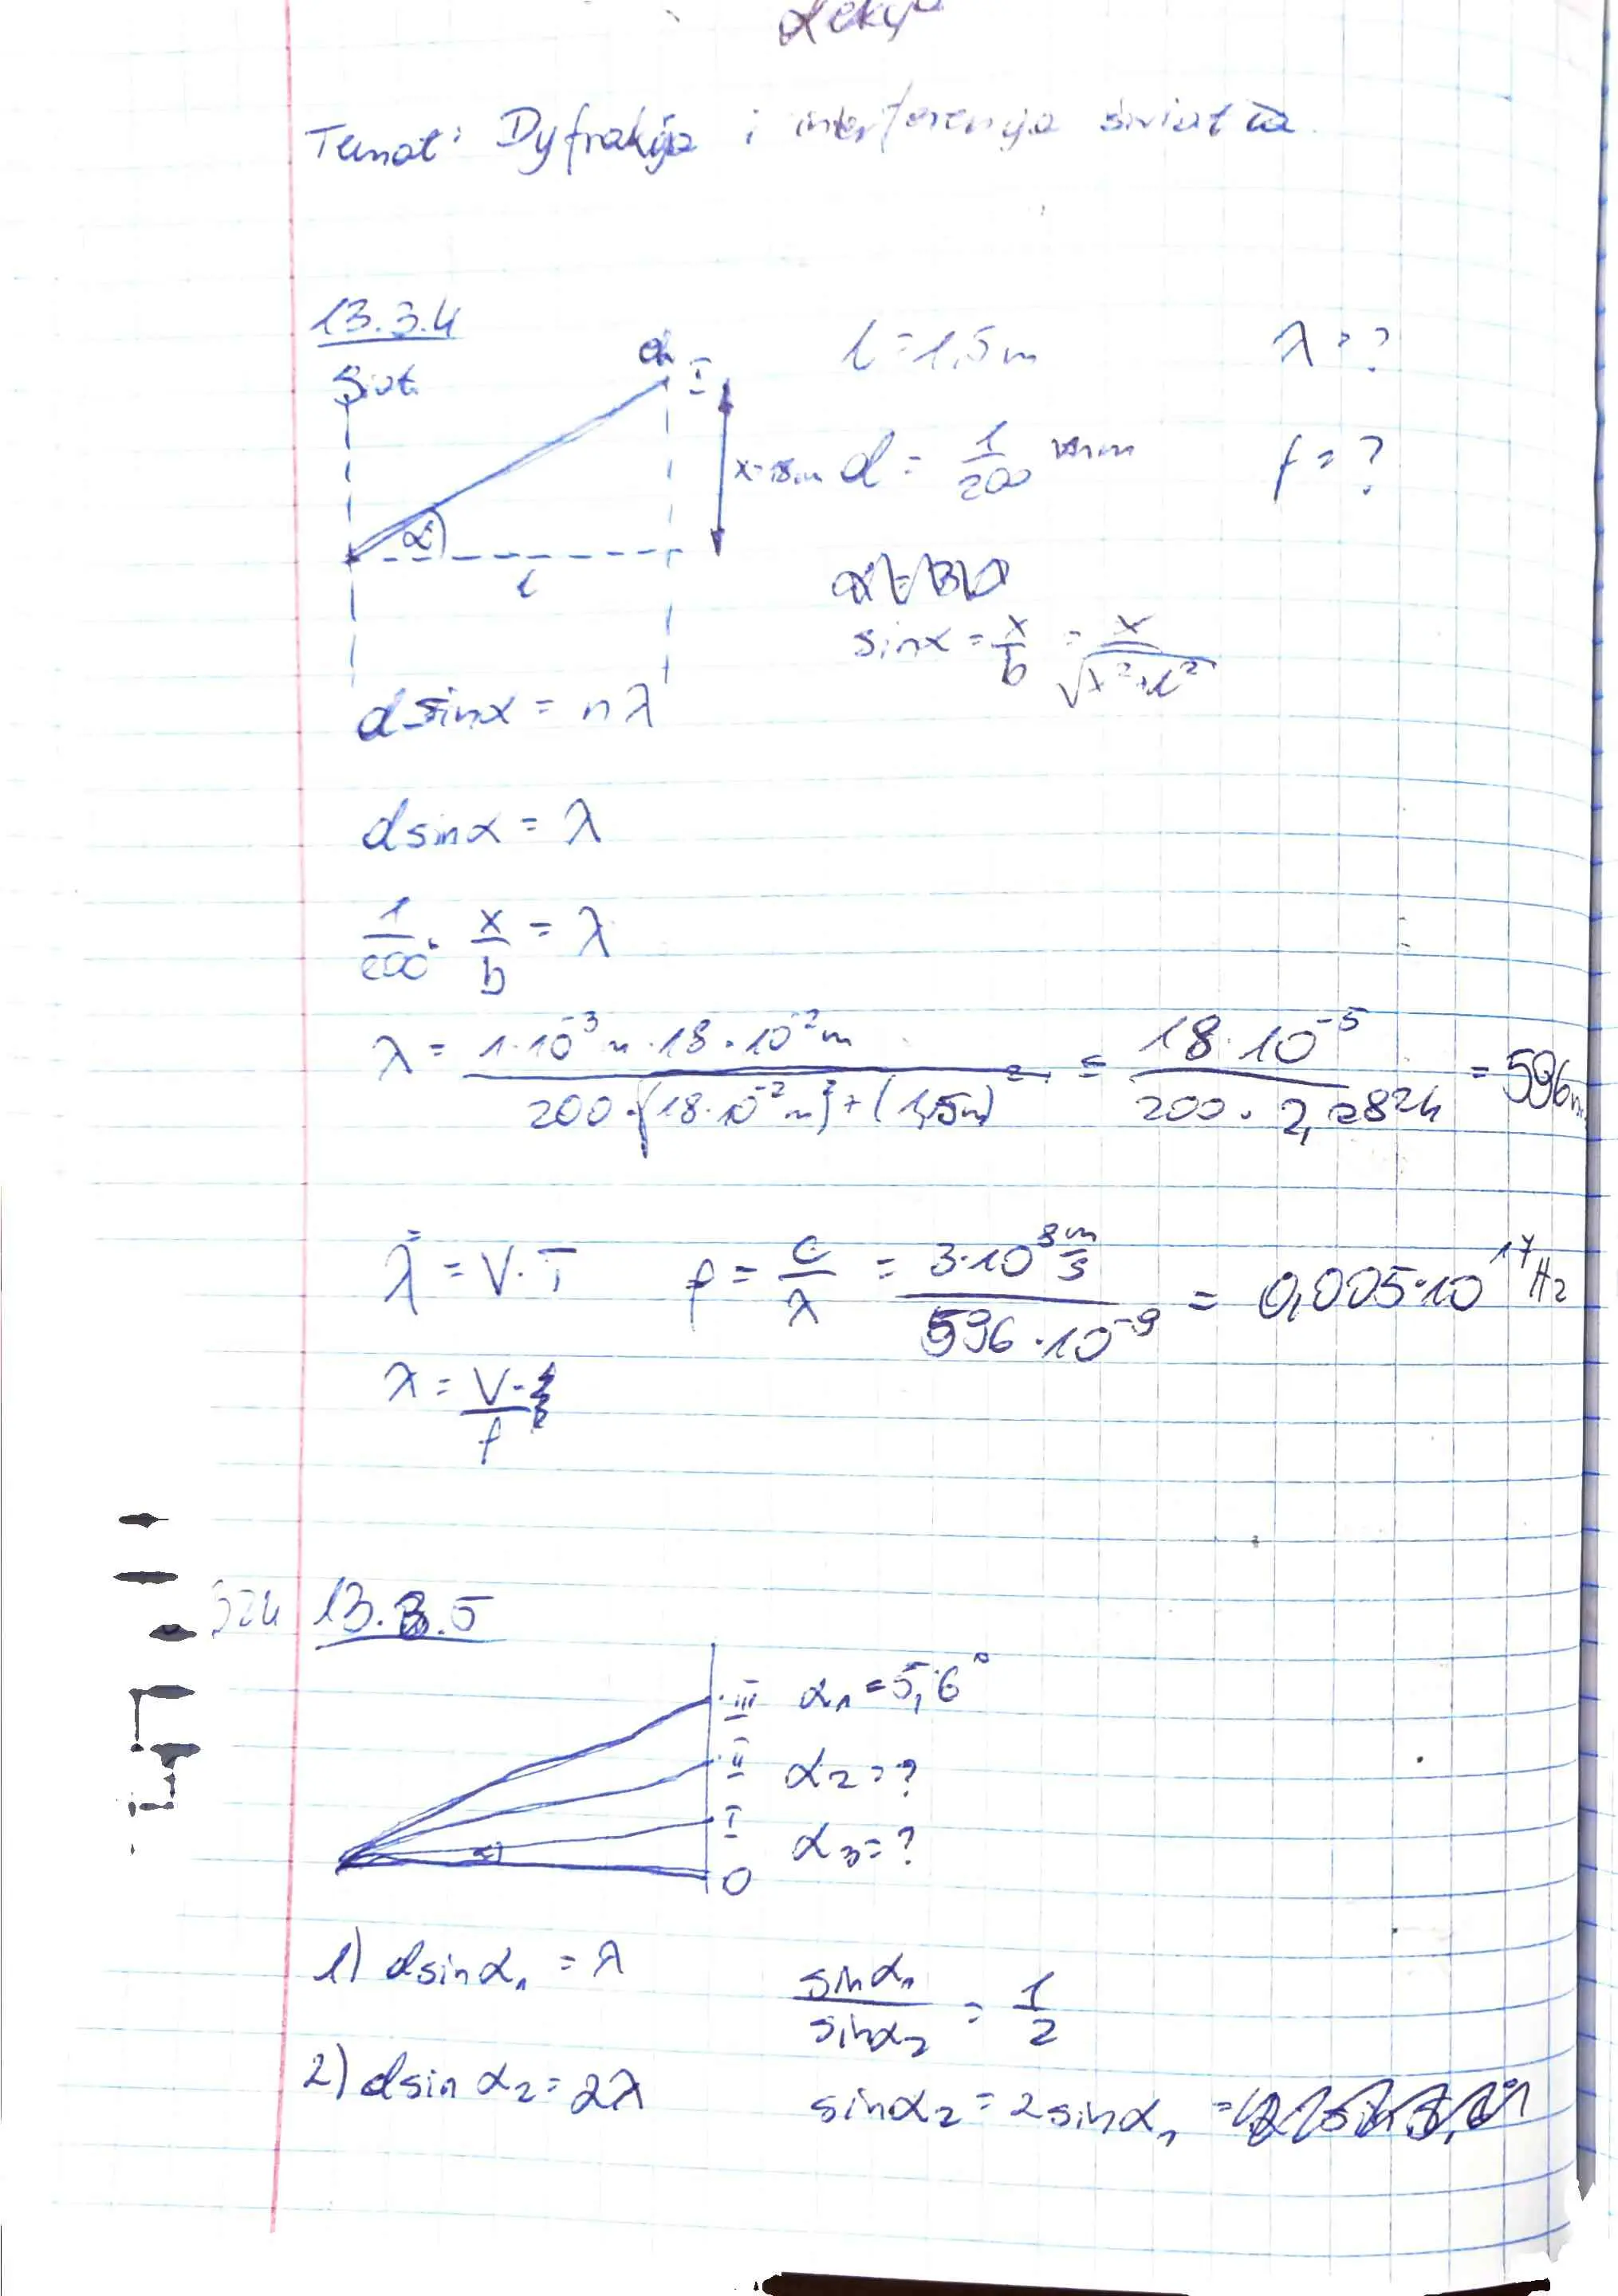 Lekcja
Temat: Dyfrakcja i interferencja światła.
13.3.4
siat.
I
l = 1,5 m
λ = ?
d = 1/200 mm
f = ?
α
l
sinα = x/b = x/√(x²+l²)
d sinα = nλ
d sinα = λ
1/200 · x/b = λ
λ = (1·10⁻³ m · 18 · 10⁻² m)/(200 · √((18·10⁻² m)² + (1,5m)²)) = (18·10⁻⁵)/(200 · 2,2824) = 596n
λ = V·T f = c/λ = (3·10⁸ m/s)/(596·10⁻⁹) = 0,005·10¹⁷ Hz
λ = V/f
13.3.5
III α₁ = 5,6°
II α₂ = ?
I α₃ = ?
0
1) d sinα₁ = λ sinα₁/sinα₂ = 1/2
2) d sin α₂ = 2λ sinα₂ = 2 sinα₁